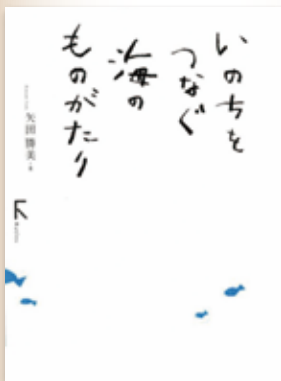 いのちを
つなぐ
海の
ものがたり
矢田勝美・著